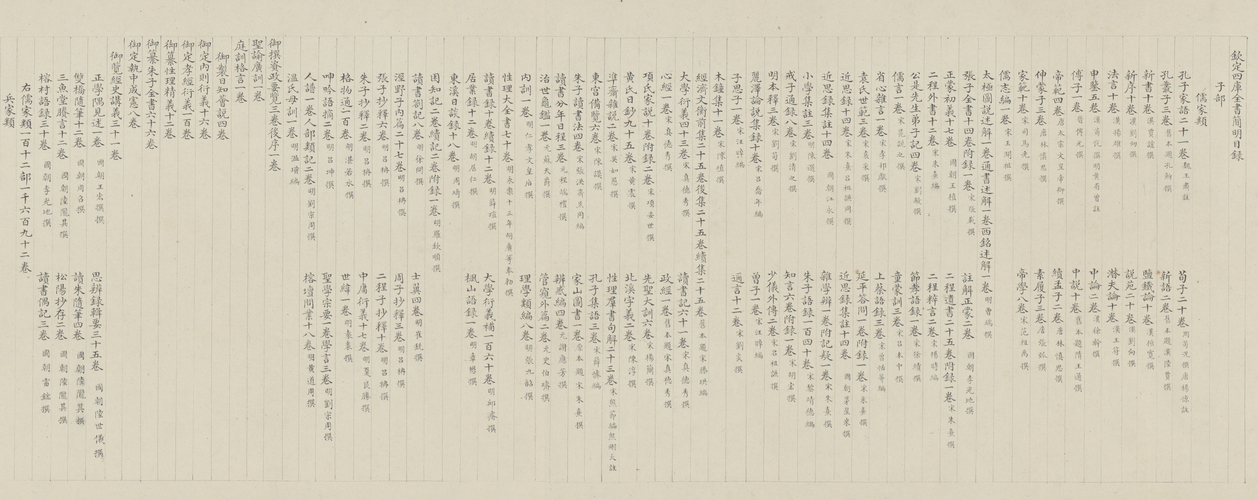 欽定四庫全書簡明目錄
子部
儒家類
孔子家語二十一卷 魏王肅註
荀子二十卷 周荀況撰唐楊倞註
孔叢子三卷 舊本題孔鮒撰
新語二卷 舊本題漢陸賈撰
新書十卷 漢賈誼撰
鹽鐵論十卷 漢桓寬撰
新序十卷 漢劉向撰
說苑二十卷 漢劉向撰
法言十卷 漢揚雄撰
潛夫論十卷 漢王符撰
申鑒五卷 漢荀悅撰明黃省曾註
中論二卷 漢徐幹撰
傅子一卷 晉傅元撰
中說十卷 舊本題隋王通撰
帝範四卷 唐太宗文皇帝御撰
續孟子二卷 唐林慎思撰
伸蒙子三卷 唐林慎思撰
素履子三卷 唐張弧撰
家範十卷 宋司馬光撰
帝學八卷 宋范祖禹撰
儒志編一卷 宋王開祖撰
太極圖說述解一卷通書述解一卷西銘述解一卷 明曹端撰
張子全書十四卷附錄一卷 宋張載撰
註解正蒙二卷 國朝李光地撰
正蒙初義十七卷 國朝王植撰
二程遺書二十五卷附錄一卷 宋朱熹撰
二程外書十二卷 宋朱熹編
二程粹言二卷 宋楊時編
公是先生弟子記四卷 宋劉敞撰
節孝語錄一卷 宋徐積撰
儒言一卷 宋晁說之撰
童蒙訓三卷 宋呂本中撰
省心雜言一卷 宋李邦獻撰
上蔡語錄三卷 宋曾恬等編
袁氏世範三卷 宋袁采撰
延平答問一卷附錄一卷 宋朱熹撰
近思錄十四卷 宋朱熹呂祖謙同撰
近思錄集註十四卷 國朝茅星來撰
近思錄集註十四卷 國朝江永撰
雜學辨一卷附記疑一卷 宋朱熹撰
小學集註三卷 明陳選撰
朱子語類一百四十卷 宋黎靖德編
戒子通錄八卷 宋劉清之撰
知言六卷附錄一卷 宋胡宏撰
明本釋三卷 宋劉荀撰
少儀外傳二卷 宋呂祖謙撰
麗澤論說集錄十卷 宋呂喬年編
曾子一卷 宋汪晫編
子思子一卷 宋汪晫編
邇言十二卷 宋劉炎撰
木鐘集十一卷 宋陳埴撰
經濟文衡前集二十五卷後集二十五卷續集二十五卷 舊本題宋滕珙編
大學衍義四十三卷 宋真德秀撰
讀書記六十一卷 宋真德秀撰
心經一卷 宋真德秀撰
政經一卷 舊本題宋真德秀撰
項氏家說十卷附錄二卷 宋項安世撰
先聖大訓六卷 宋楊簡撰
黃氏日鈔九十五卷 宋黃震撰
北溪字義二卷 宋陳淳撰
準齋雜說二卷 宋吳如愚撰
性理羣書句解二十三卷 宋熊節編熊剛大註
東宮備覽六卷 宋陳謨撰
孔子集語三卷 宋薛據編
朱子讀書法四卷 宋張洪齊㷍同編
家山圖書一卷 舊本題宋朱熹撰
讀書分年日程三卷 元程端禮撰
辨惑編四卷 元謝應芳撰
治世龜鑑一卷 元蘇天爵撰
管窺外篇二卷 元史伯璿撰
內訓一卷 明仁孝文皇后撰
理學類編八卷 明張九韶撰
性理大全書七十卷 明永樂十三年胡廣等奉勅撰
讀書錄十卷續錄十二卷 明薛瑄撰
大學衍義補一百六十卷 明邱濬撰
居業錄十二卷 明胡居仁撰
楓山語錄一卷 明章懋撰
東溪日談錄十八卷 明周琦撰
困知記二卷續記二卷附錄一卷 明羅欽順撰
讀書劄記八卷 明徐問撰
士翼四卷 明崔銑撰
涇野子內篇二十七卷 明呂柟撰
周子抄釋三卷 明呂柟撰
張子抄釋六卷 明呂柟撰
二程子抄釋十卷 明呂柟撰
朱子抄釋二卷 明呂柟撰
中庸衍義十七卷 明夏良勝撰
格物通一百卷 明湛若水撰
世緯一卷 明袁袠撰
呻吟語摘二卷 明呂坤撰
聖學宗要一卷學言三卷 明劉宗周撰
人譜一卷人譜類記二卷 明劉宗周撰
榕壇問業十八卷 明黃道周撰
溫氏母訓一卷 明溫璜編
御撰資政要覽三卷後序一卷
聖諭廣訓一卷
庭訓格言一卷
御製日知薈說四卷
御定內則衍義十六卷
御定孝經衍義一百卷
御纂性理精義十二卷
御纂朱子全書六十六卷
御定執中成憲八卷
御覽經史講義三十一卷
正學隅見述一卷 國朝王宏撰撰
思辨錄輯要三十五卷 國朝陸世儀撰
雙橋隨筆十二卷 國朝周召撰
讀朱隨筆四卷 國朝陸隴其撰
三魚堂賸言十二卷 國朝陸隴其撰
松陽抄存二卷 國朝陸隴其撰
榕村語錄三十卷 國朝李光地撰
讀書偶記三卷 國朝雷鋐撰
右儒家類一百十二部一千六百九十二卷
兵家類